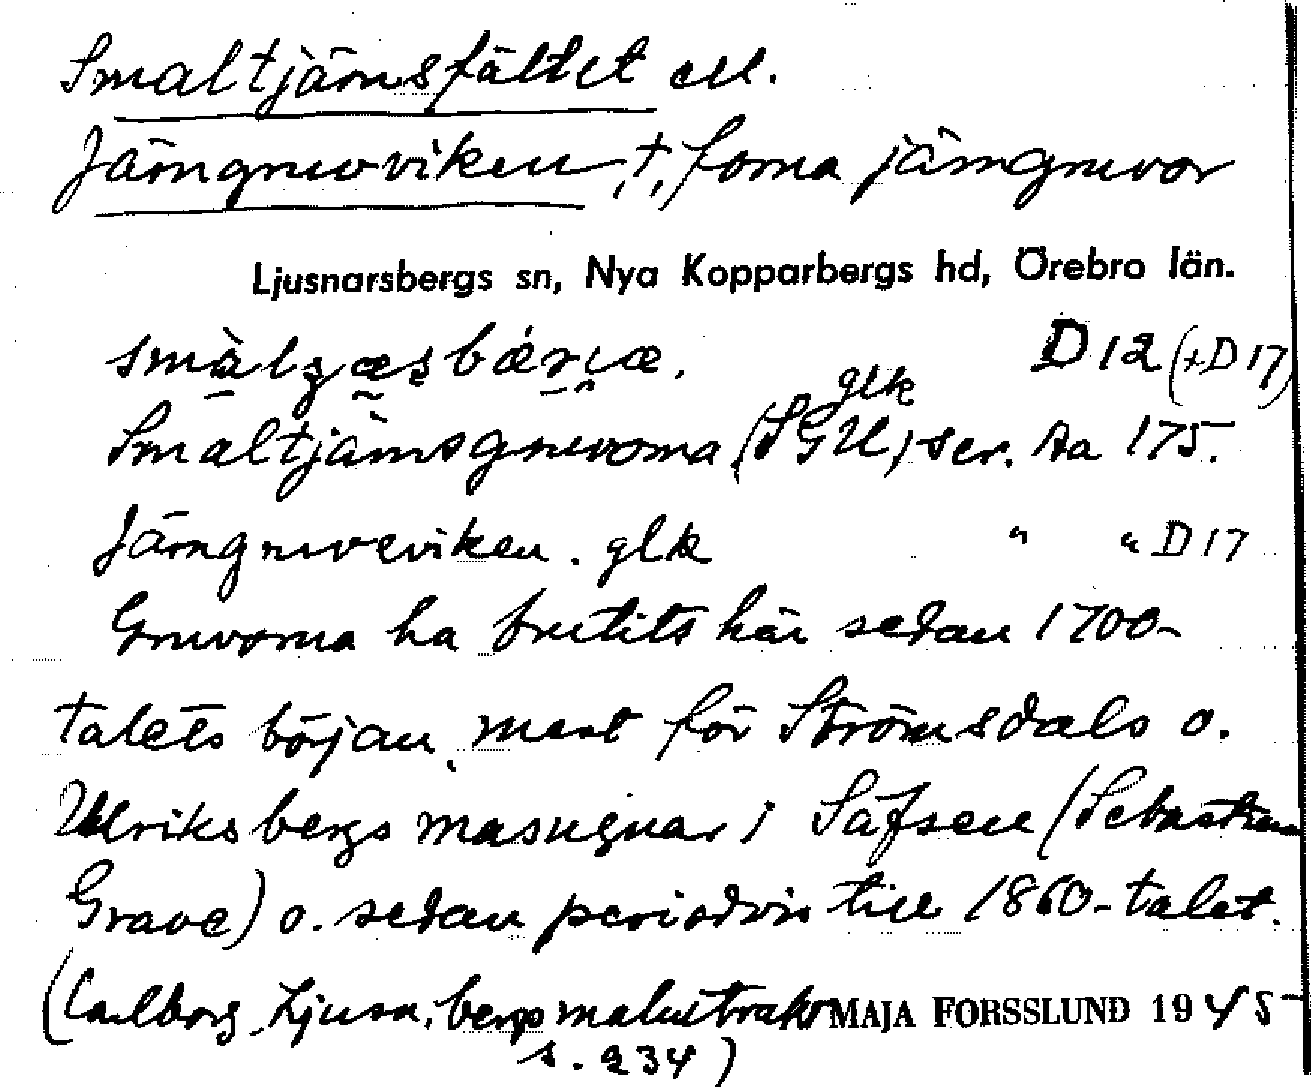 Smaltjärnsfältet ell.
Järngruvviken, †, forna järngruvor
Ljusnarsbergs sn, Nya Kopparbergs hd, Örebro län.
D 12 (+D 17)
glk
Smaltjärnsgruvorna (SGU) ser. Aa 175.
Järngruveviken. glk " " D 17
Gruvorna ha brutits här sedan 1700-
talets början, mest för Strömsdals o.
Ulriksbergs masugnar i Säfsen (Sebastian
Grave) o. sedan periodvis till 1860-talet.
(Carlborg, Ljusn.bergs malmtrakt MAJA FORSSLUND 1945
s. 234)